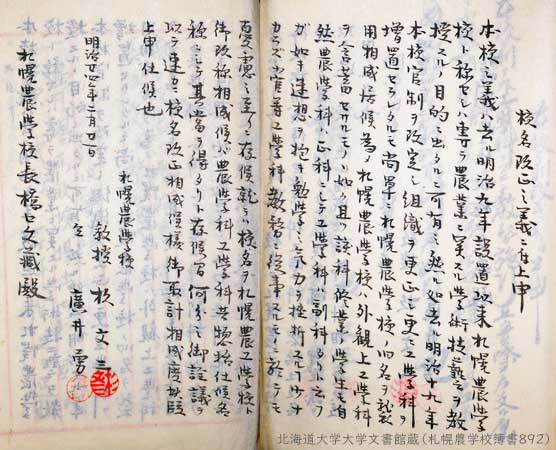 校名改正之義ニ付上申
本校之義ハ去ル明治九年設置以来札幌農学
校ト称セシハ専ラ農業ニ関スル学術技藝ヲ教
授スルノ目的ニ出タルニ可有之然ル如去ル明治十九年
本校官制ヲ改定シ組織ヲ更正シ更ニ工学科ヲ
増置セラレタルモ尚単ニ札幌農学校ノ旧名ヲ襲
用相成居候為メ札幌農学校ハ外観上工学科
ヲ含蓄セサルモノヽ如ク且ツ該科修業ノ学生モ自
然農学科ハ正科ニシテ工学科ハ副科タリト云フ
カ如キ連想ヲ抱キ勤学ノ気力ヲ挫折スル
カラス小官等工学科教務ニ従事スルモノニ於テモ
憂慮之至ニ存候就テハ校名ヲ札幌農工学校ト
御改称相成候ハヽ農学科工学科共惣括仕候名
称ニシテ其当ヲ得タリト存候間何分之御詮議ヲ
以テ速カニ校名改正相成候様御取計相成度此段
上申仕候也
札幌農学校
明治廿四年二月廿一日
教授 杉文三
仝 廣井勇
札幌農学校長橋口文藏殿
北海道大学大学文書館蔵（札幌農学校簿書892）